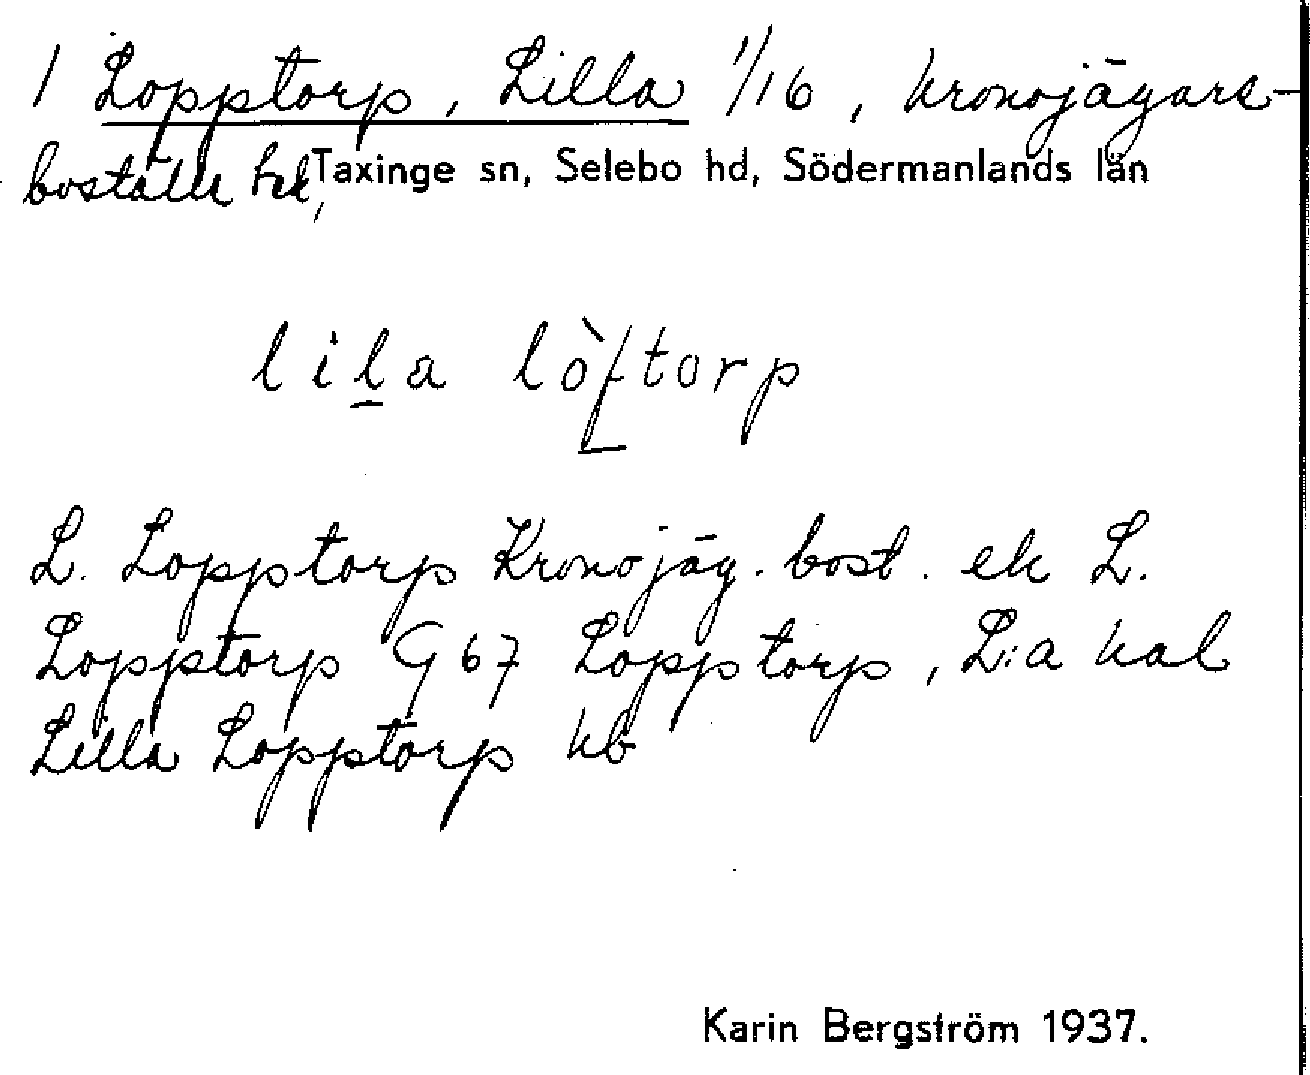 1 Lopptorp, Lilla 1/16, kronojägars-
boställe hd, Taxinge sn, Selebo hd, Södermanlands län
lila lòftorp
L. Lopptorp Kronojäg. bost. ek L.
Lopptorp G 67 Lopptorp, L:a kal
Lilla Lopptorp kb
Karin Bergström 1937.